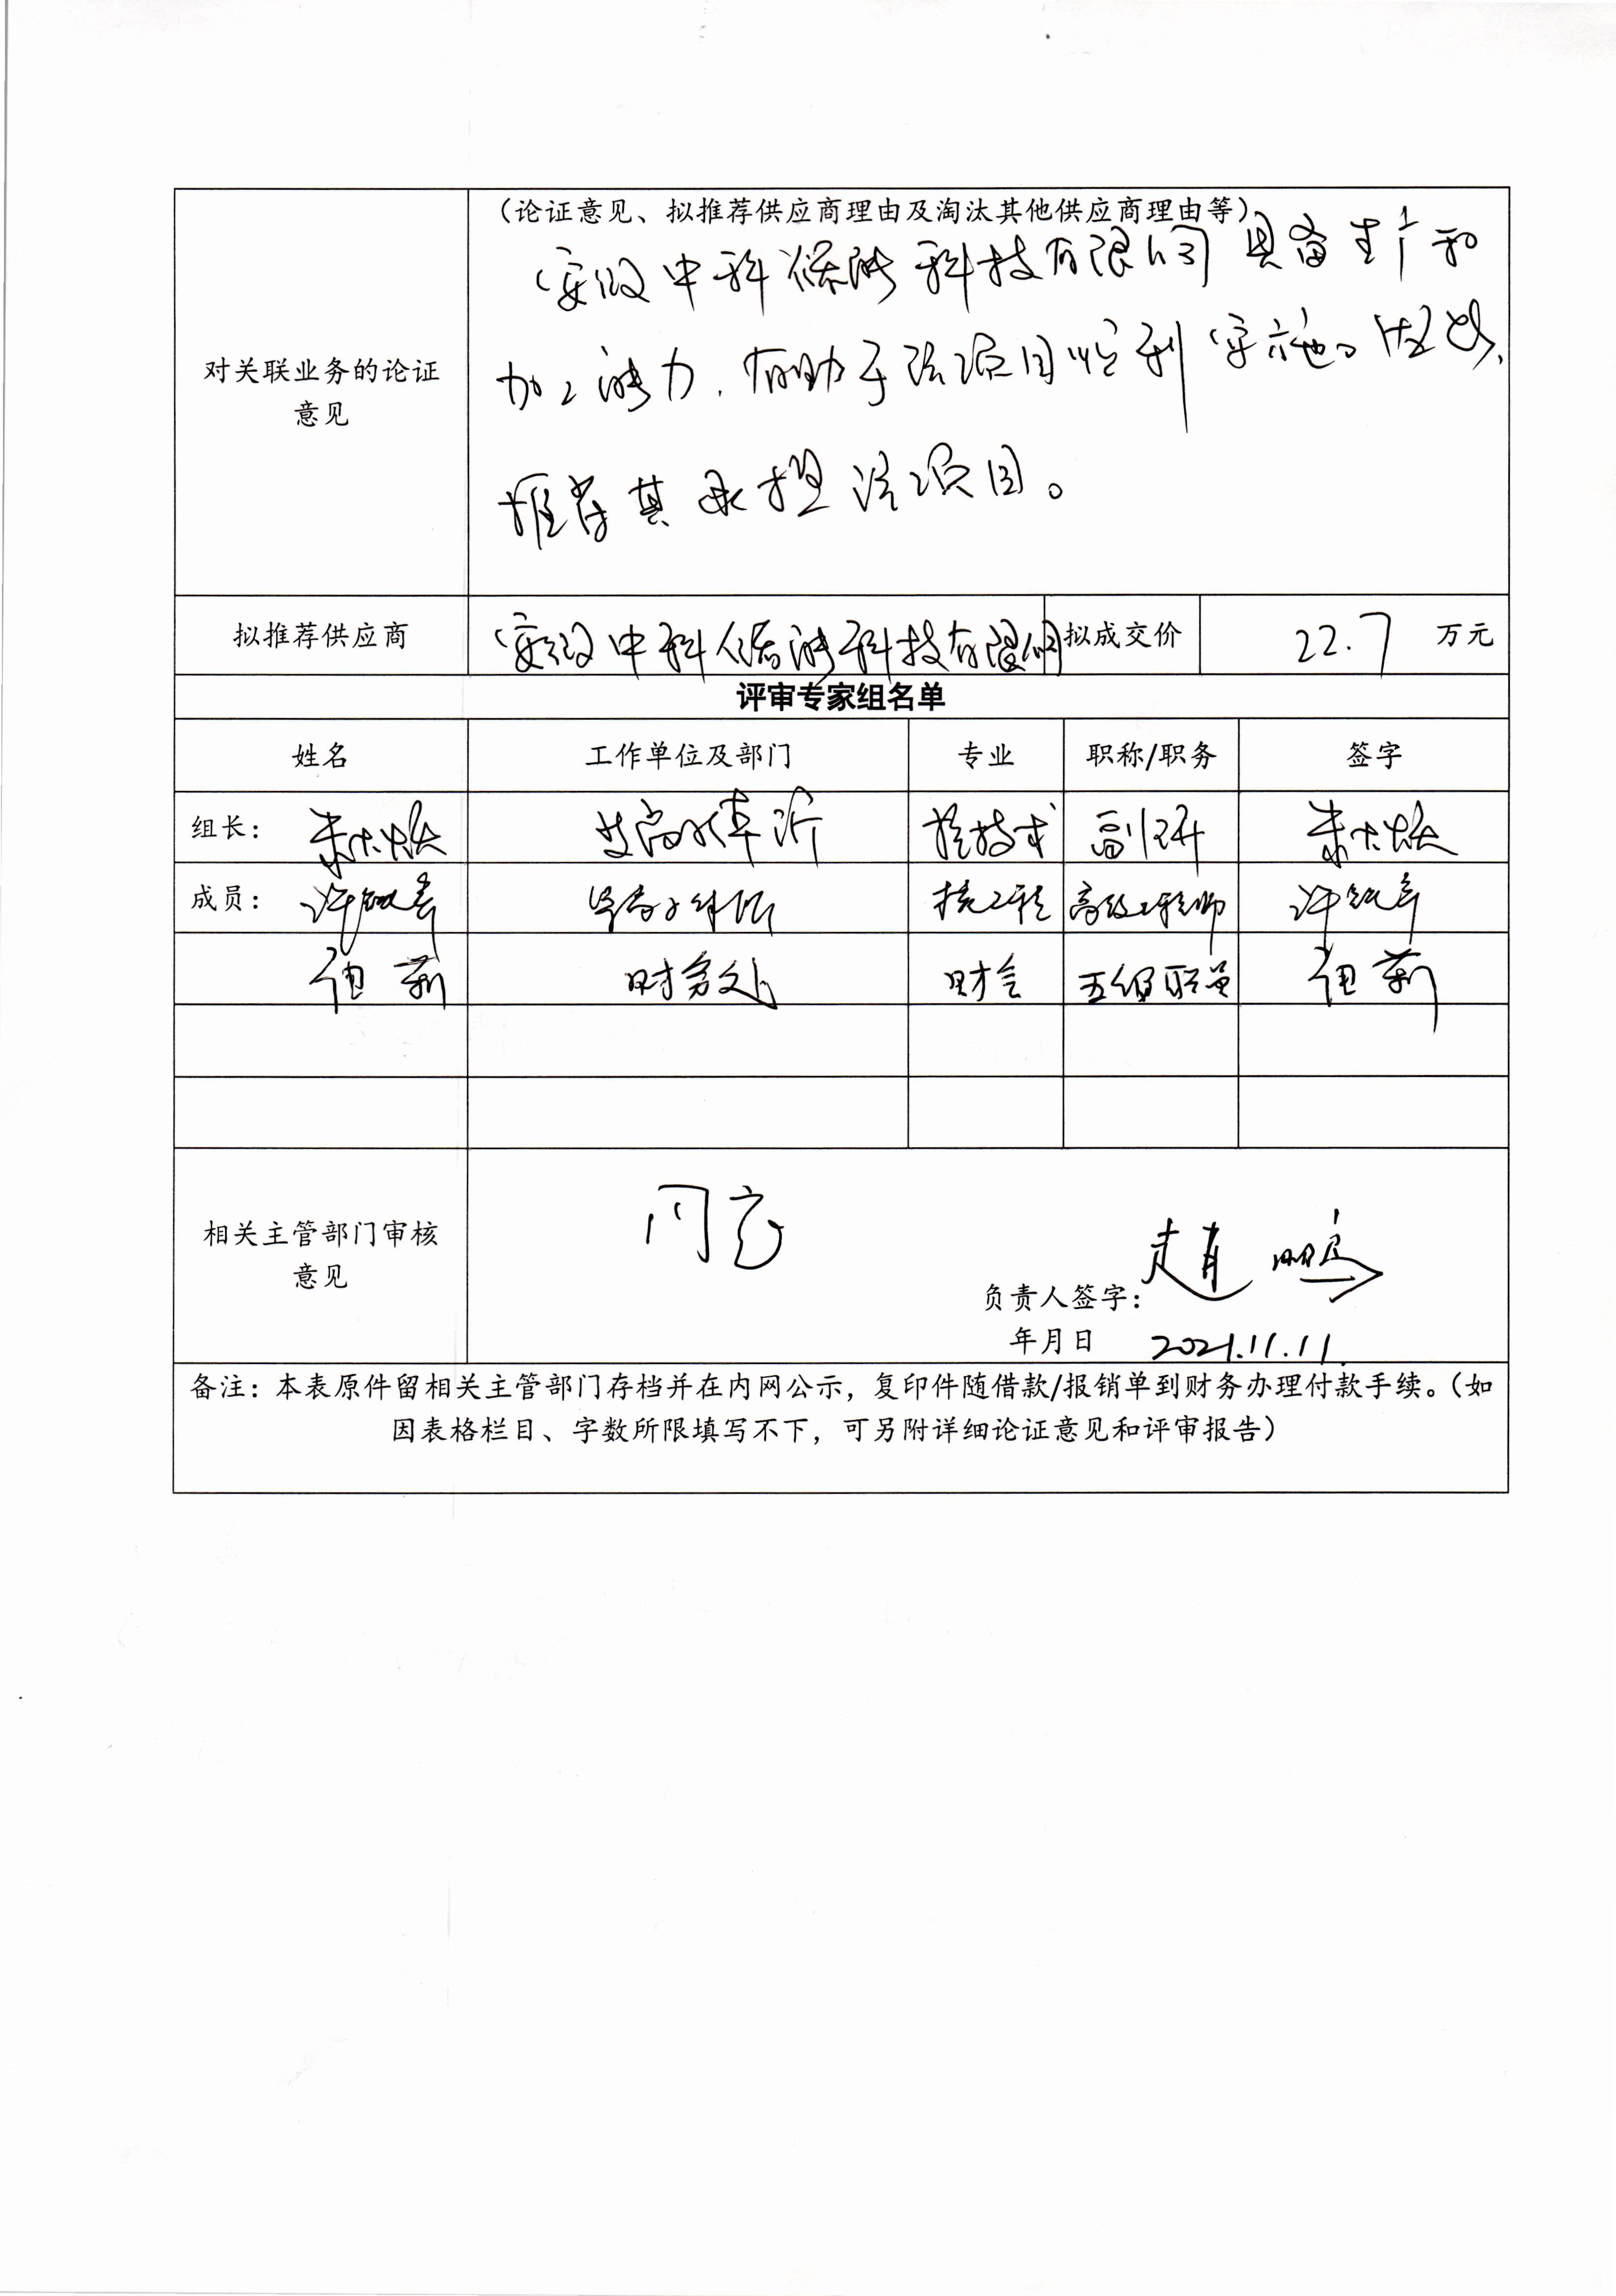 (论证意见、拟推荐供应商理由及淘汰其他供应商理由等)
安徽中科 科技有限公司具备生产和
加工能力,有助于该项目顺利实施。
推荐其承担该项目。
对关联业务的论证
意见
拟推荐供应商 安徽中科 科技有限公司 拟成交价 22.7 万元
评审专家组名单
姓名 工作单位及部门 专业 职称/职务 签字
组长: 朱 核技术 副研 朱
成员: 许 核工程 高级工程师 许
伍莉 财务处 财会 五级职员 伍莉
相关主管部门审核
意见
同意
负责人签字: 赵鹏
年月日 2021.11.11.
备注:本表原件留相关主管部门存档并在内网公示,复印件随借款/报销单到财务办理付款手续。(如
因表格栏目、字数所限填写不下,可另附详细论证意见和评审报告)